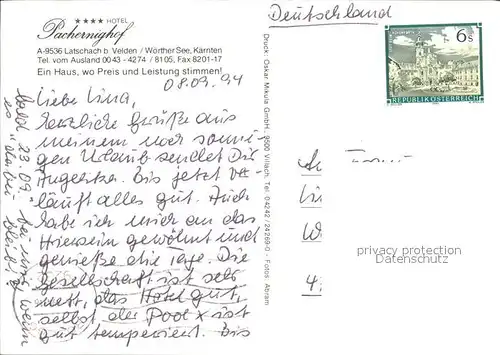 ★★★★ HOTEL
Pachernighof
A-9536 Latschach b. Velden / Wörther See, Kärnten
Tel. vom Ausland 0043 - 4274 / 8105, Fax 8201-17
Ein Haus, wo Preis und Leistung stimmen!
08.09.94
Liebe Lina,
herzliche Grüße aus
meinem noch sonni-
gen Urlaub sendet Dir
Angelika. Bis jetzt ver-
läuft alles gut. Auch
habe ich mich an das
Hiersein gewöhnt und
genieße die Tage. Die
Gesellschaft ist sehr
nett, das Hotel gut,
selbst der Pool ist
gut temperiert. Bis
bald 23.09. bei uns wenn
es dabei bleibt
Druck: Oskar Mikula GmbH, 9500 Villach, Tel. 04242/24169-0 - Fotos: Abram
Deutschland
6 S
REPUBLIK ÖSTERREICH
privacy protection
Deliveries